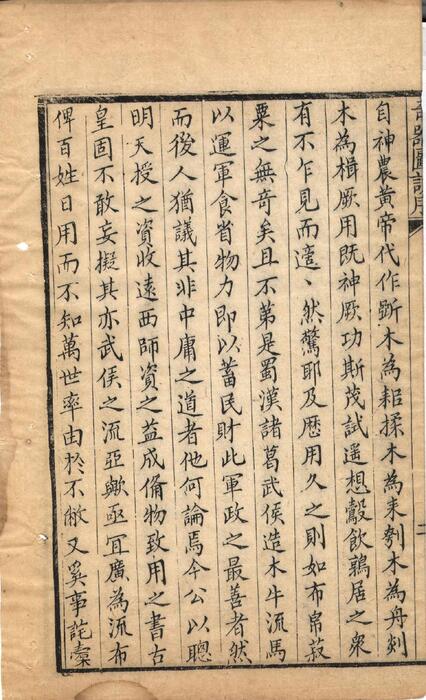 自神農黃帝代作斲木為耜揉木為耒刳木為舟剡
木為楫厥用既神厥功斯茂試遥想鷇飲鶉居之衆
有不乍見而遑、然驚耶及歷用久之則如布帛菽
粟之無奇矣且不第是蜀漢諸葛武侯造木牛流馬
以運軍食省物力即以蓄民財此軍政之最善者然
而後人猶議其非中庸之道者他何論焉今公以聰
明天授之資收遠西師資之益成俻物致用之書古
皇固不敢妄擬其亦武侯之流亞歟亟冝廣為流布
俾百姓日用而不知萬世率由於不敝又奚事詫橐